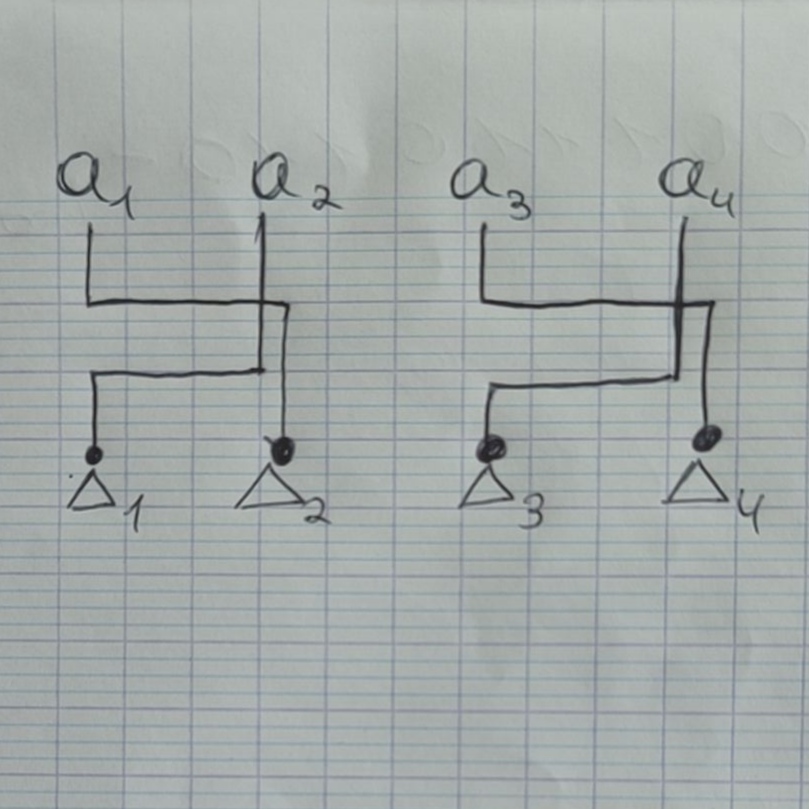 a₁ a₂ a₃ a₄
Δ₁ Δ₂ Δ₃ Δ₄